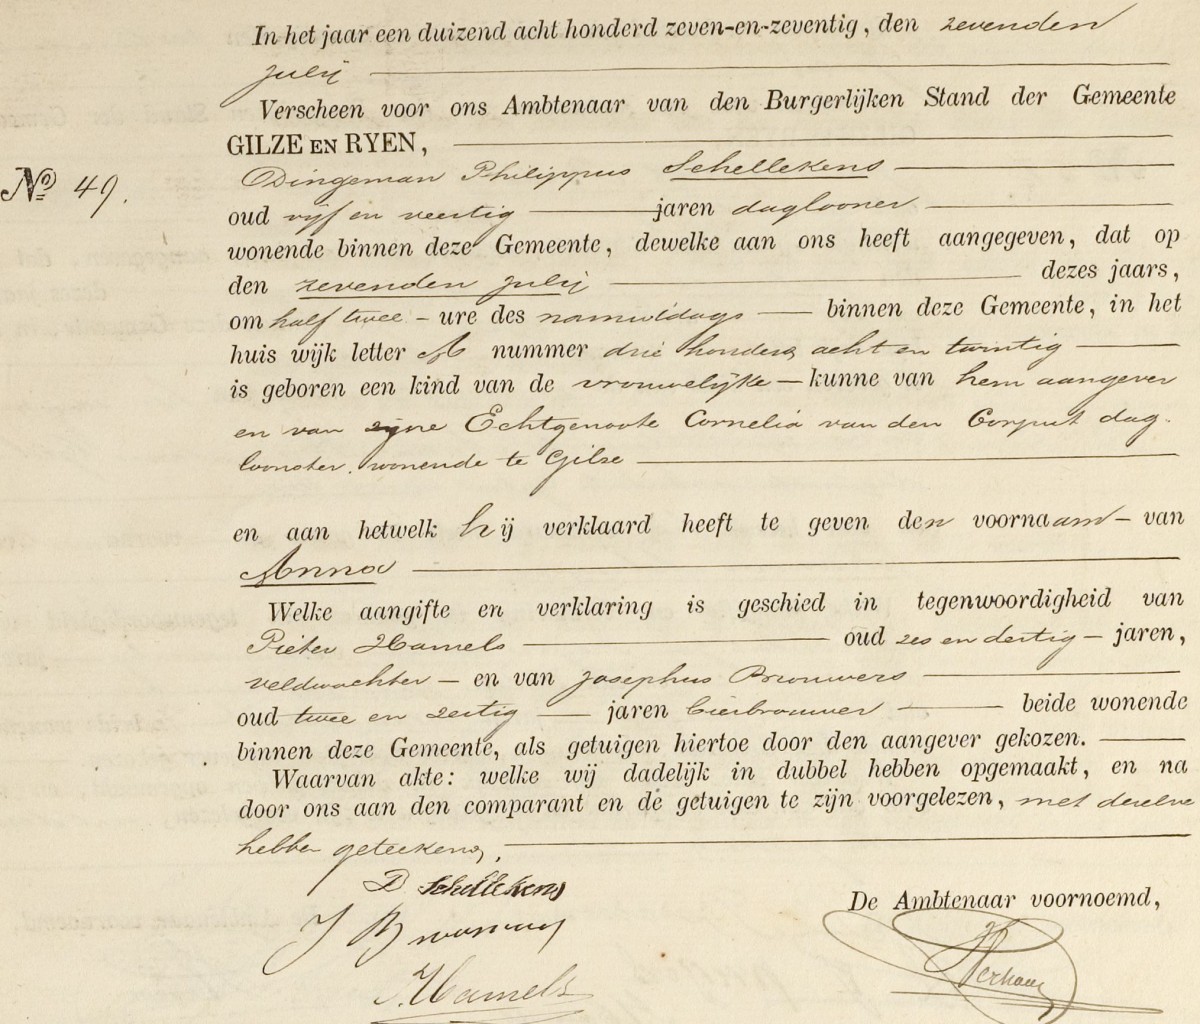 In het jaar een duizend acht honderd zeven-en-zeventig, den zevenden
julij
Verscheen voor ons Ambtenaar van den Burgerlijken Stand der Gemeente
GILZE EN RYEN,
Nº 49.
Dingeman Philippus Schellekens
oud vijf en veertig jaren daglooner
wonende binnen deze Gemeente, dewelke aan ons heeft aangegeven, dat op
den zevenden julij dezes jaars,
om half twee - ure des namiddags binnen deze Gemeente, in het
huis wijk letter A nummer drie honderd acht en twintig
is geboren een kind van de vrouwelijke - kunne van hem aangever
en van zijne Echtgenoote Cornelia van den Corput dag-
loonster, wonende te Gilze
en aan hetwelk hij verklaard heeft te geven den voornaam - van
Anna
Welke aangifte en verklaring is geschied in tegenwoordigheid van
Pieter Hamels oud zes en dertig - jaren,
veldwachter - en van Josephus Brouwers
oud twee en zestig jaren bierbrouwer beide wonende
binnen deze Gemeente, als getuigen hiertoe door den aangever gekozen.
Waarvan akte: welke wij dadelijk in dubbel hebben opgemaakt, en na
door ons aan den comparant en de getuigen te zijn voorgelezen, met dezelve
hebben geteekend,
D Schellekens
De Ambtenaar voornoemd,
J Brouwers
P. Hamels